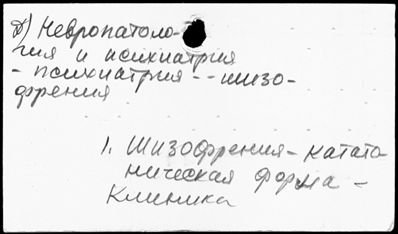 Д) Невропатоло-
гия и психиатрия
- психиатрия -- шизо-
френия
1. Шизофрения - катато
ническая форма -
Клиника